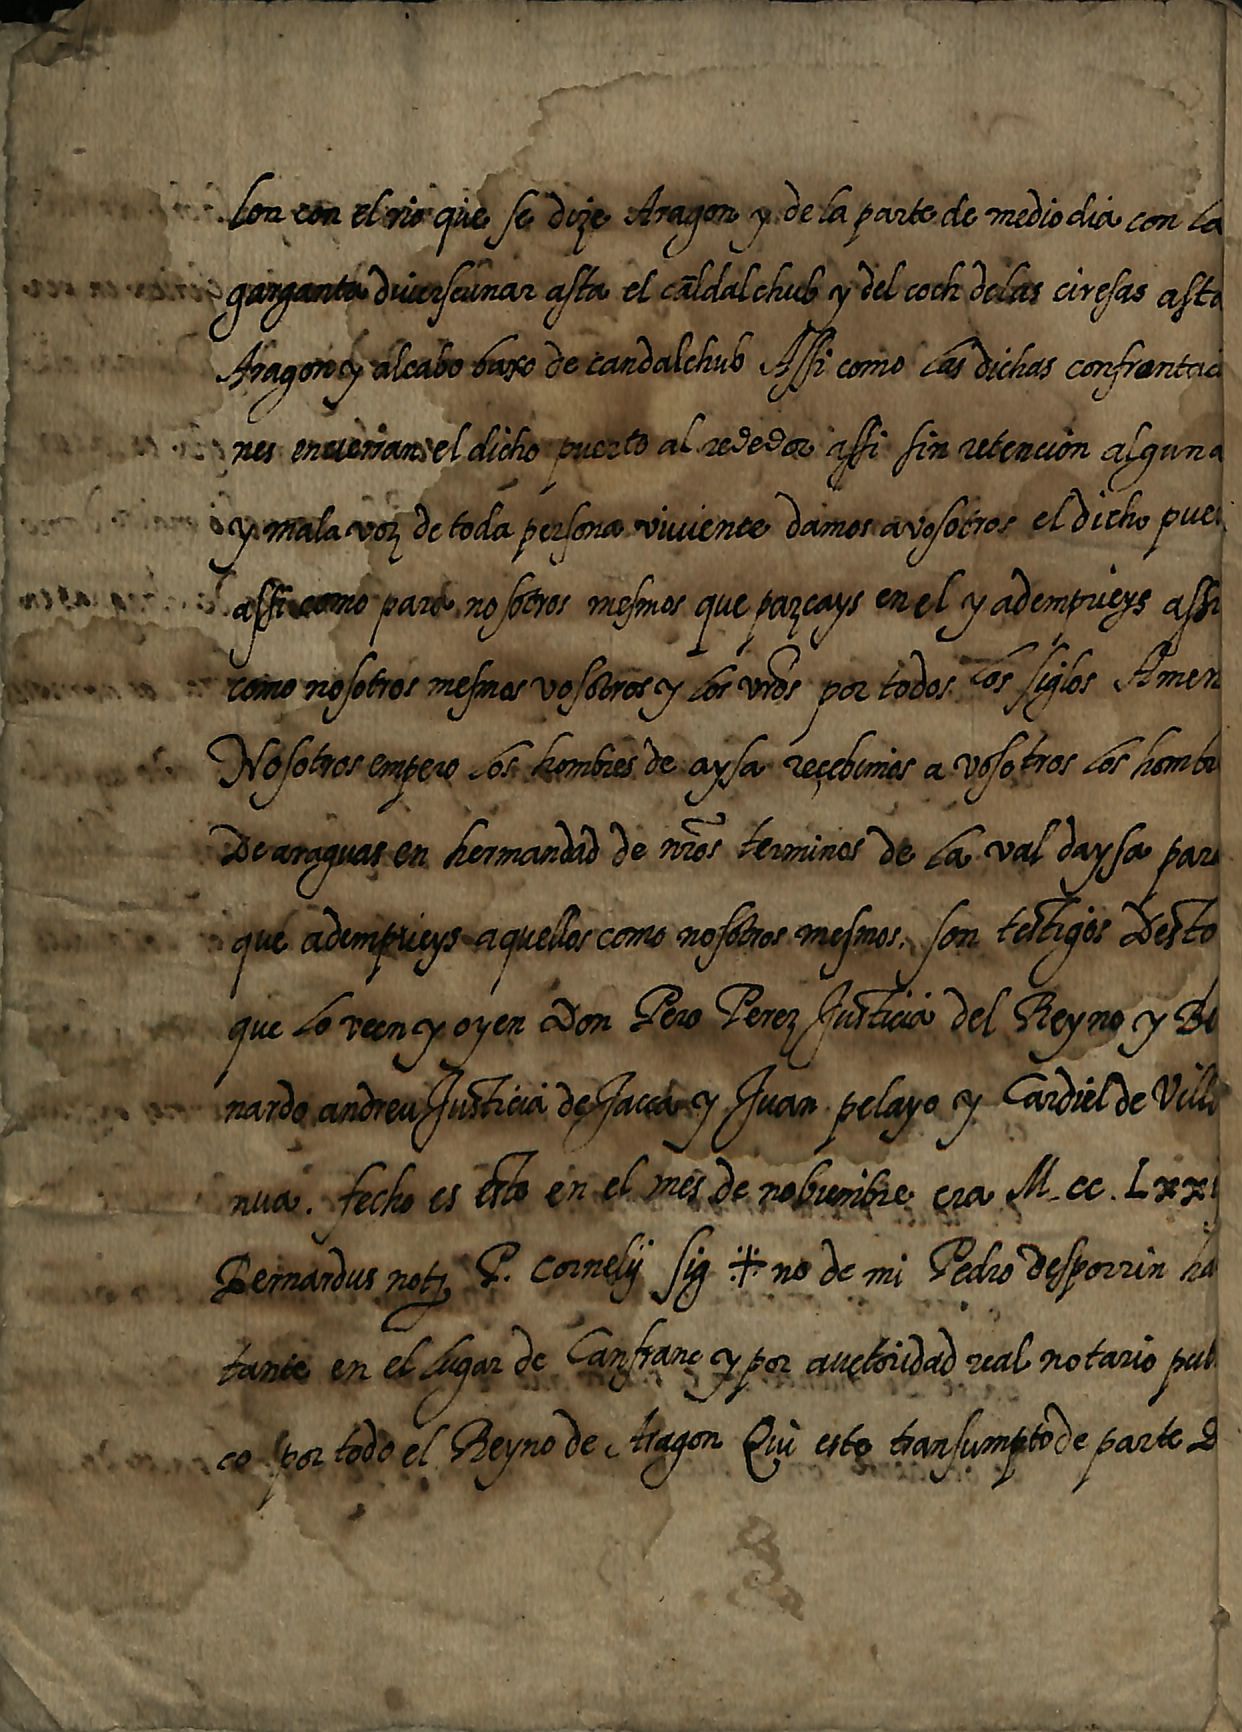 lon con el rio que se dize Aragon y de la parte de medio dia con la
garganta asta el cāldalchub y del coch delas ciresas asta
Aragon y alcabo baxo de candalchub Assi como las dichas confrontaci
nes el dicho puerto al rededor assi sin retencion alguna
y mala voz de toda persona viuiente damos a vosotros el dicho puer
assi como para nosotros mesmos que pazcays en el y ademprieys assi
como nosotros mesmos vosotros y los vr̃os por todos los siglos Amen
Nosotros empero los hombres de aysa reçebimos a vosotros los hombr
De araguas en hermandad de nr̃os terminos de la val daysa para
que adempries aquellos como nosotros mesmos. son testigos Desto
que lo veen y oyen Don Pero Perez Justicia del Reyno y Be
nardo andreu Justicia de Jacca y Juan pelayo y Cardiel de Villa
nua. fecho es esto en el mes de nobiembre era M. cc. Lxx
Bernardus notȝ P. Cornelij sig no de mi Pedro Desporrin ha
tante en el lugar de Canfranc y por auctoridad real notario publ
co por todo el Reyno de Aragon Qui este transumpto de parte D